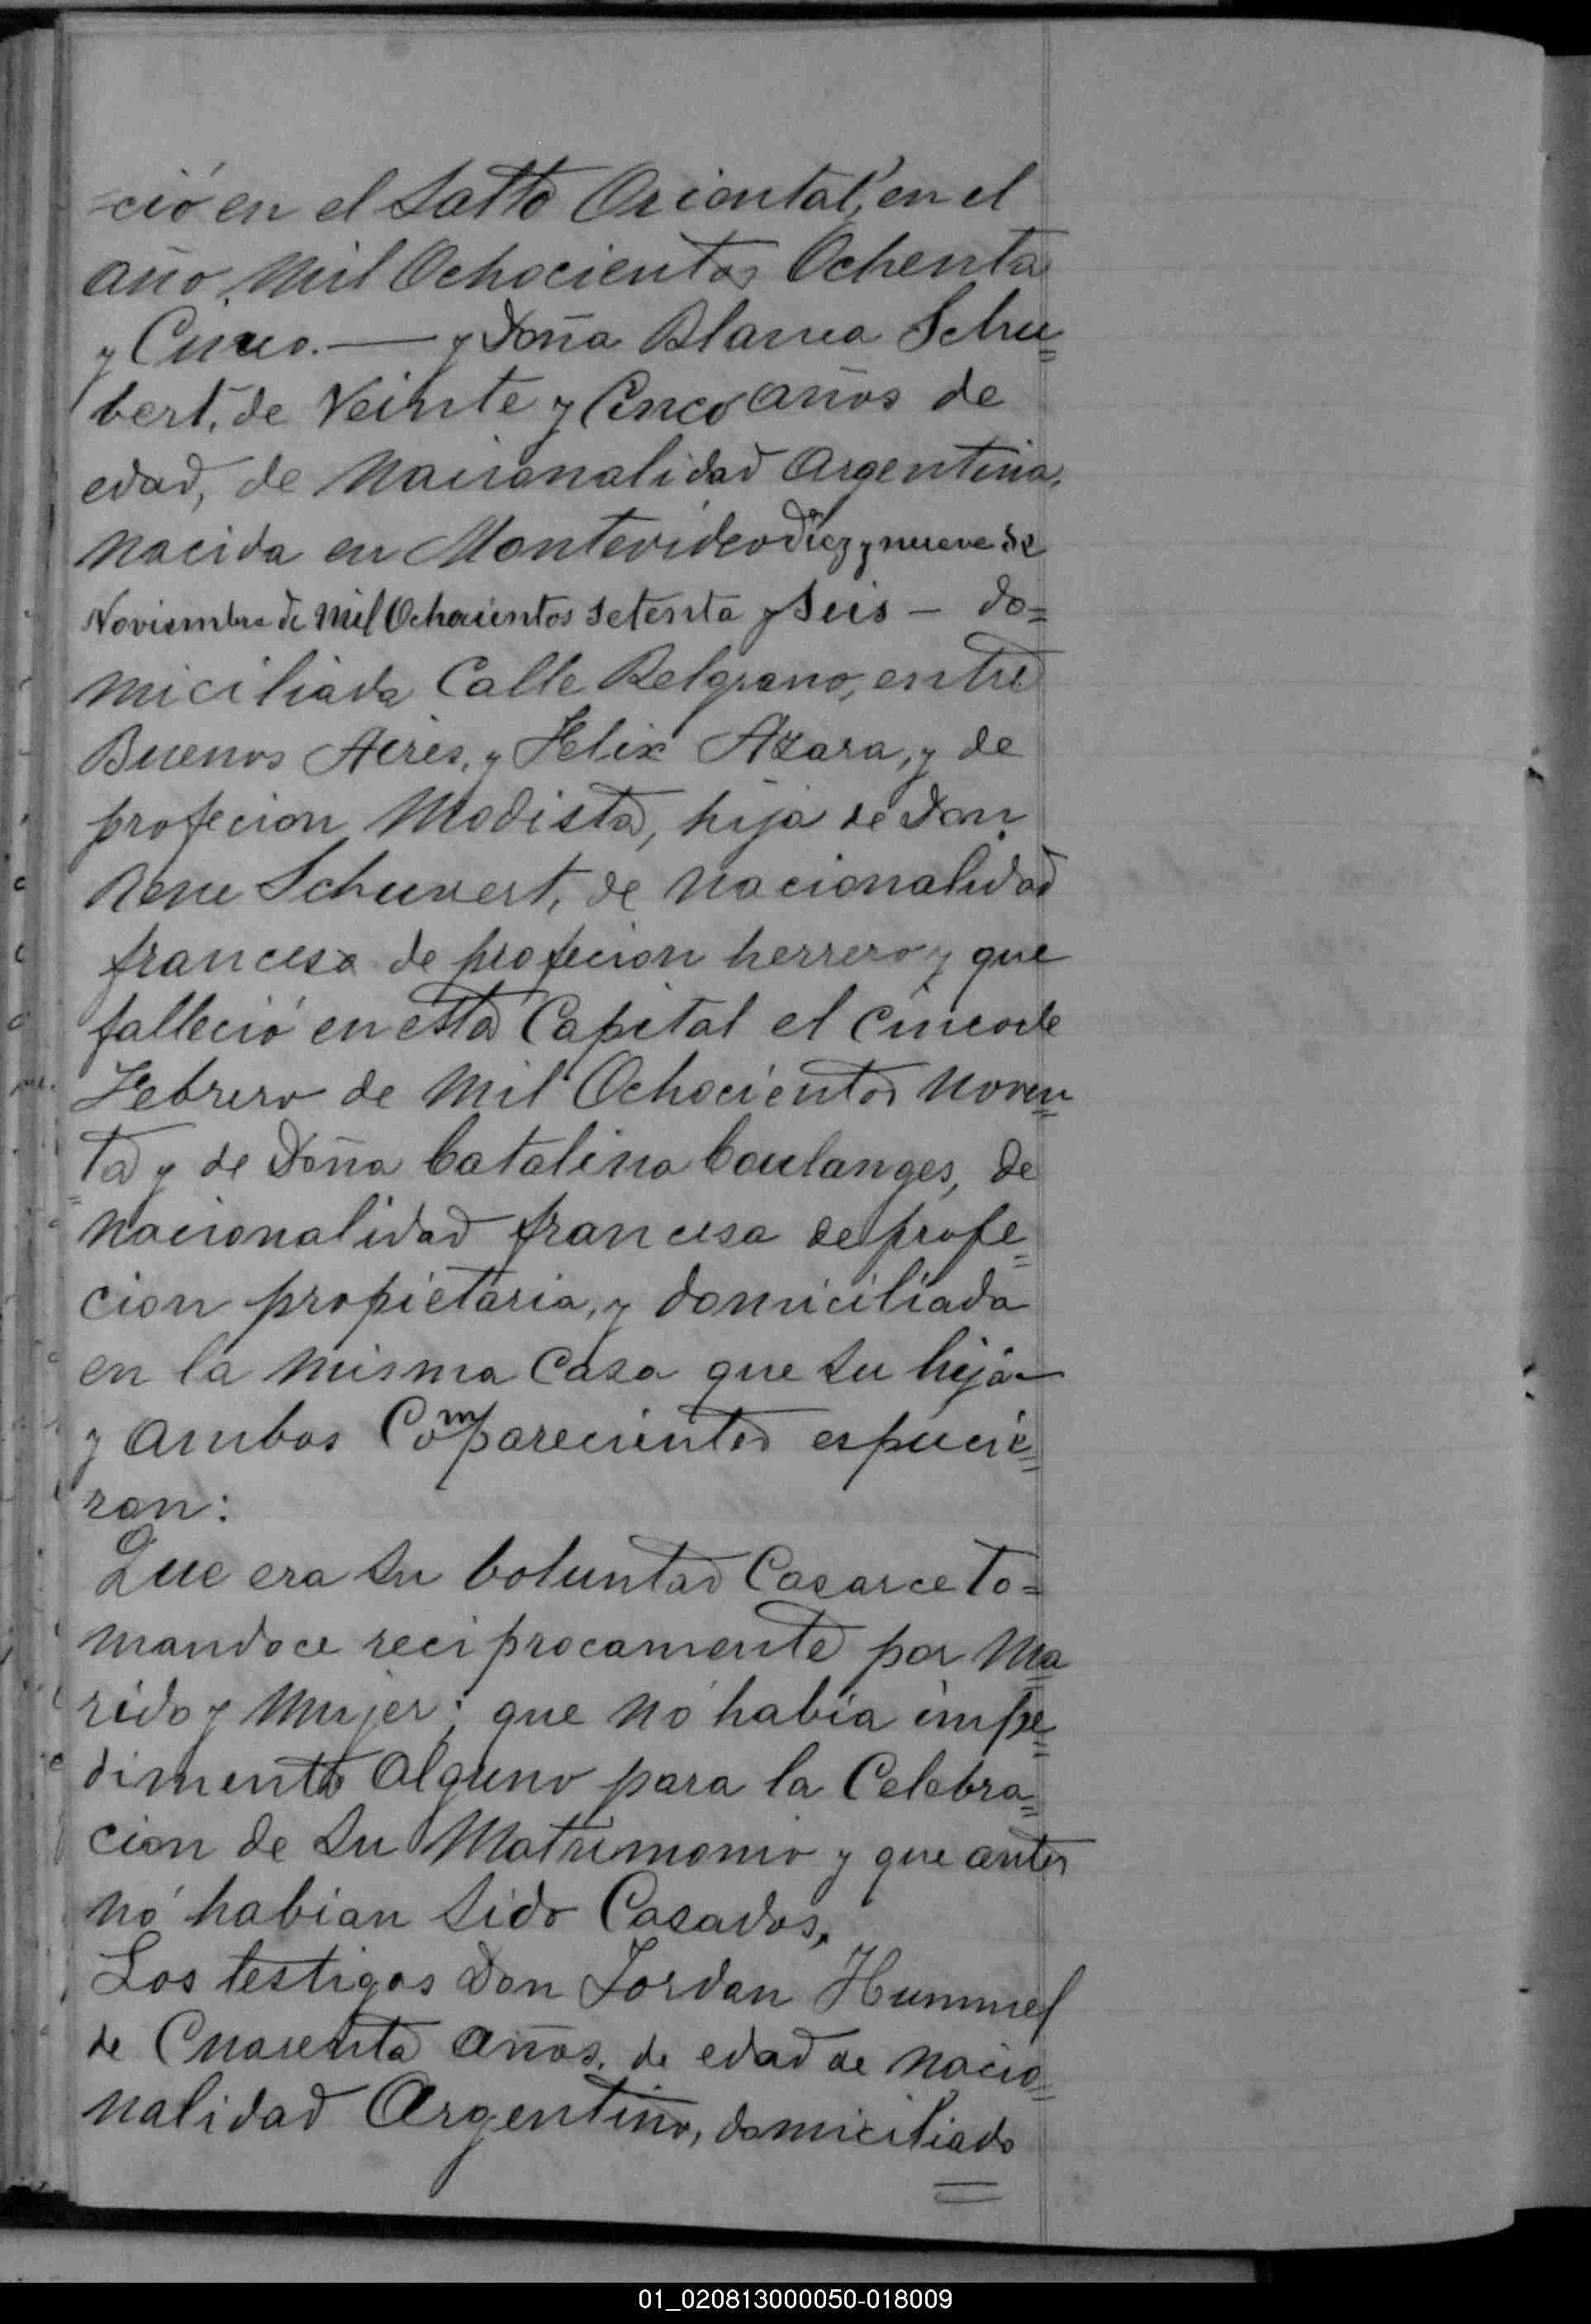 ció en el Salto Oriental, en el
año, Mil Ochocientos Ochenta
y Cinco. — y Doña Blanca Schu=
bert, de Veinte y Cinco años de
edad, de Nacionalidad Argentina,
nacida en Montevideo diez y nueve de
Noviembre de Mil Ochocientos Setenta y Seis — do=
miciliada Calle Belgrano, entre
Buenos Aires, y Felix Azara, y de
profecion Modista, hija de Don
Rene Schuvert, de nacionalidad
francesa de profecion herrero y que
falleció en esta Capital el cinco de
Febrero de Mil Ochocientos Noven=
=ta y de Doña Catalina Coulanges, de
nacionalidad francesa de profe=
cion propietaria, y domiciliada
en la misma Casa que su hija—
y ambos Comparecientes espucie=
ron:
Que era su boluntad Casarce to=
mandoce reciprocamente por Ma=
rido y Mujer; que nó habia impe=
dimento Alguno para la Celebra=
cion de su Matrimonio y que antes
nó habian sido Casados,
Los testigos Don Jordan Hummel
de Cuarenta años, de edad de nacio=
nalidad Argentino, domiciliado
01_020813000050-018009